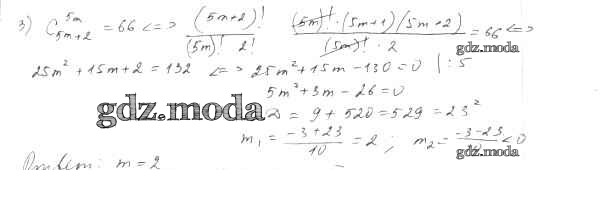 3) C_{5m+2}^{5m} = 66 <=> (5m+2)! / (5m)! 2! (5m)! · (5m+1)(5m+2) / (5m)! · 2 = 66 <=>
gdz.moda
25m² + 15m + 2 = 132 <=> 25m² + 15m - 130 = 0 | : 5
5m² + 3m - 26 = 0
gdz.moda
D = 9 + 520 = 529 = 23²
m₁ = -3+23 / 10 = 2 ; m₂ = -3-23 / 10 < 0
gdz.moda
Ответ: m = 2